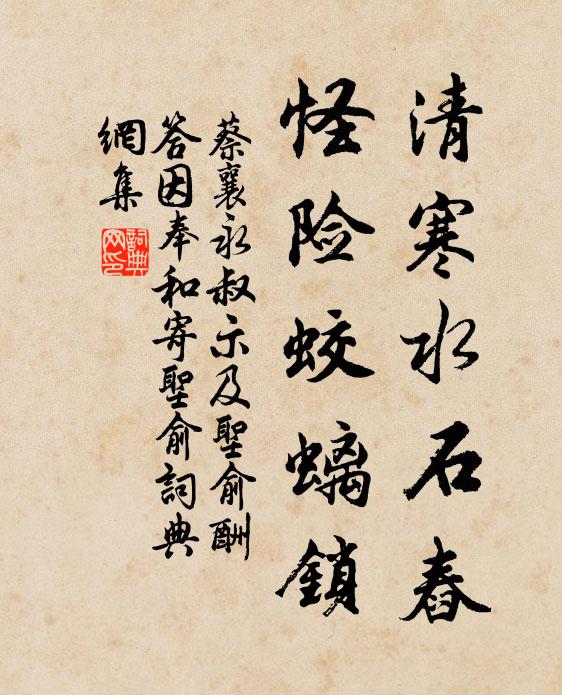 清寒水石舂
怪险蛟螭鎖
蔡襄永叔示及聖俞酬
答因奉和寄聖俞詞典
網集
詞典网印